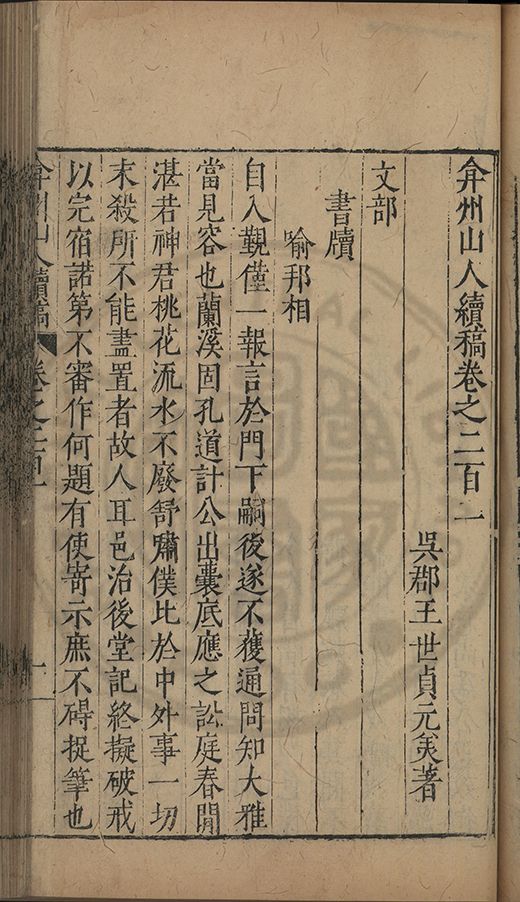 弇州山人續稿卷之二百一
吳郡王世貞元美著
文部
書牘
喻邦相
自入覲僅一報言於門下嗣後遂不獲通問知大雅
當見容也蘭溪固孔道計公出囊底應之訟庭春閒
湛若神君桃花流水不廢舒嘯僕比於中外事一切
末殺所不能盡置者故人耳邑治後堂記終擬破戒
以完宿諾第不審作何題有使寄示庶不碍捉筆也
弇州山人續稿
卷之二百一
一